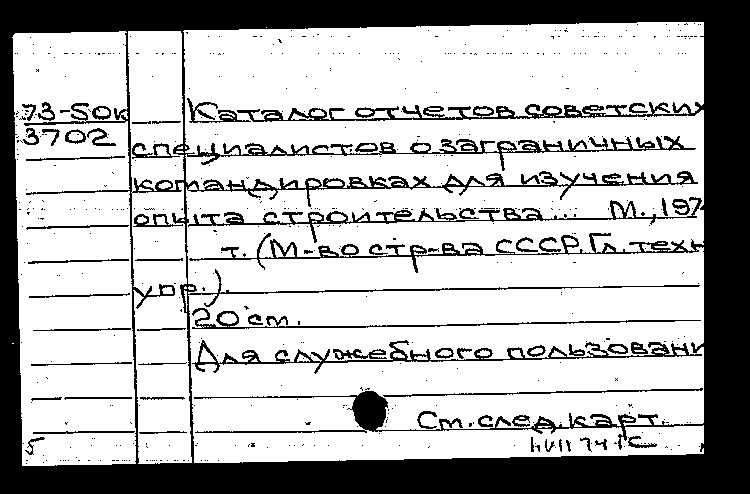 73-5ок Каталог отчетов советских
3702 специалистов о заграничных
командировках для изучения
опыта строительства... М., 197
т. (М-во стр-ва СССР. Гл. техн
упр.).
20 см.
Для служебного пользовани
См. след. карт.
5